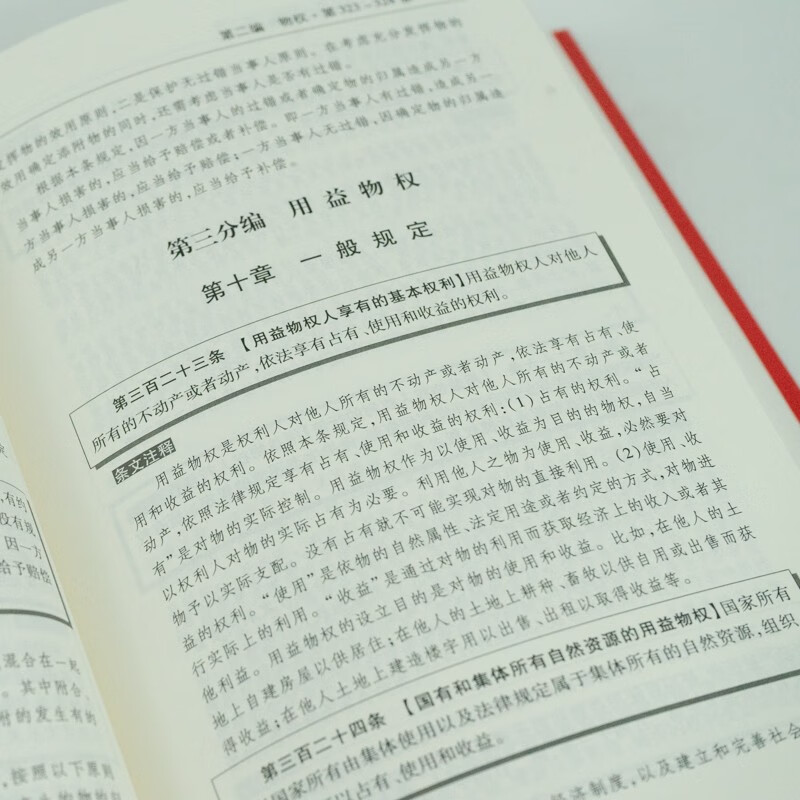 第二编 物权·第323—324条
发挥物的效用原则,二是保护无过错当事人原则。在考虑充分发挥物的
效用确定添附物的同时,还需考虑当事人是否有过错。
根据本条规定,因一方当事人的过错或者确定物的归属造成另一方
当事人损害的,应当给予赔偿或者补偿。即一方当事人有过错,造成另一
方当事人损害的,应当给予赔偿;一方当事人无过错,因确定物的归属造
成另一方当事人损害的,应当给予补偿。
第三分编 用益物权
第十章 一般规定
第三百二十三条 【用益物权人享有的基本权利】用益物权人对他人
所有的不动产或者动产,依法享有占有、使用和收益的权利。
条文注释
用益物权是权利人对他人所有的不动产或者动产,依法享有占有、使
用和收益的权利。依照本条规定,用益物权人对他人所有的不动产或者
动产,依照法律规定享有占有、使用和收益的权利:(1)占有的权利。“占
有”是对物的实际控制。用益物权作为以使用、收益为目的的物权,自当
以权利人对物的实际占有为必要。利用他人之物为使用、收益,必然要对
物予以实际支配。没有占有就不可能实现对物的直接利用。(2)使用、收
益的权利。“使用”是依物的自然属性、法定用途或者约定的方式,对物进
行实际上的利用。“收益”是通过对物的利用而获取经济上的收入或者其
他利益。用益物权的设立目的是对物的使用和收益。比如,在他人的土
地上自建房屋以供居住;在他人的土地上耕种、畜牧以供自用或出售而获
得收益;在他人土地上建造楼宇用以出售、出租以取得收益等。
第三百二十四条 【国有和集体所有自然资源的用益物权】国家所有
或者国家所有由集体使用以及法律规定属于集体所有的自然资源,组织
以占有、使用和收益。
经济制度,以及建立和完善社会
有约
没有规
因一方
给予赔偿
混合在一起
。其中附合、
附的发生有的
,按照以下原则